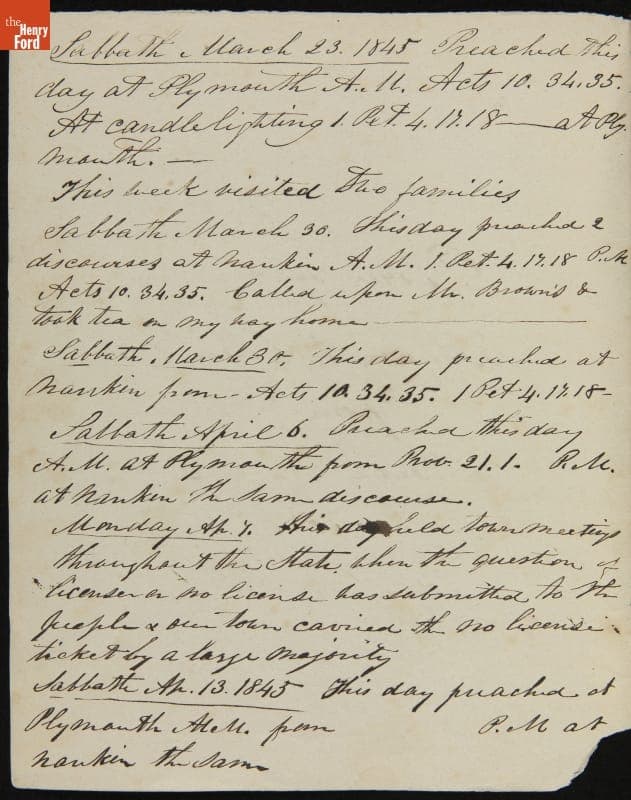 the
Henry
Ford
Sabbath March 23. 1845 Preached this
day at Plymouth A.M. Acts 10. 34. 35.
At candlelighting 1. Pet. 4. 17. 18 — at Ply
mouth. —
This week visited two families
Sabbath March 30. This day preached 2
discourses at Nankin A.M. 1. Pet. 4. 17. 18 P.M
Acts 10. 34. 35. Called upon Mr. Browns &
took tea on my way home —
Sabbath. March 30. This day preached at
Nankin from - Acts 10. 34. 35. 1 Pet. 4. 17. 18 -
Sabbath April 6. Preached this day
A.M. at Plymouth from Prov. 21. 1. P.M.
at Nankin the same discourse.
Monday Ap. 7. This day held town meetings
throughout the State, when the question of
license or no license was submitted to the
people & our town carried the no license
ticket by a large majority
Sabbath Ap. 13. 1845 This day preached at
Plymouth A.M. from P.M at
Nankin the same